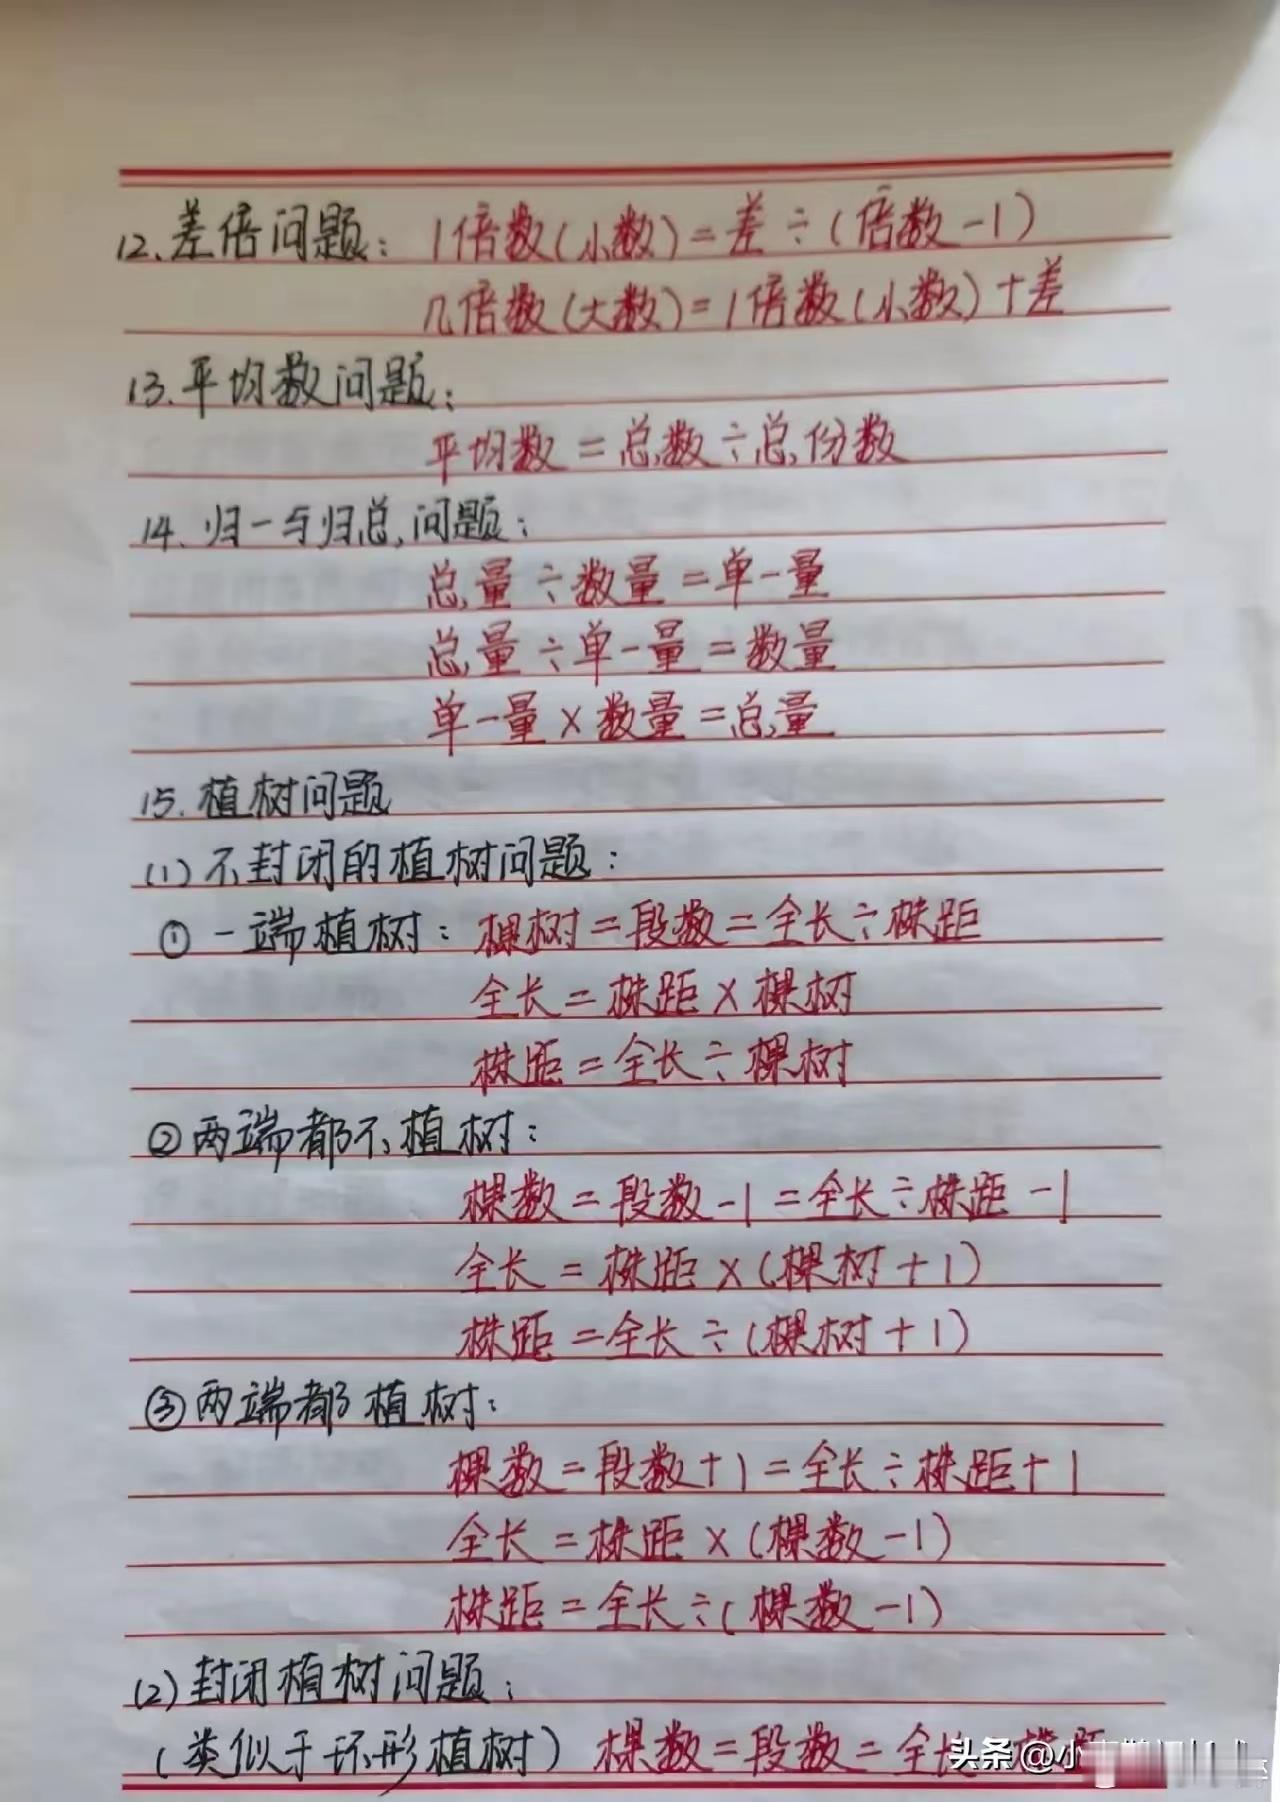 12.差倍问题：1倍数(小数)=差÷(倍数-1)
几倍数(大数)=1倍数(小数)+差
13.平均数问题：
平均数=总数÷总份数
14.归一与归总问题：
总量÷数量=单一量
总量÷单一量=数量
单一量×数量=总量
15.植树问题
(1)不封闭的植树问题：
①一端植树：棵树=段数=全长÷株距
全长=株距×棵树
株距=全长÷棵树
②两端都不植树：
棵数=段数-1=全长÷株距-1
全长=株距×(棵树+1)
株距=全长÷(棵树+1)
③两端都植树：
棵数=段数+1=全长÷株距+1
全长=株距×(棵数-1)
株距=全长÷(棵数-1)
(2)封闭植树问题：
(类似于环形植树)棵数=段数=全长
头条@小